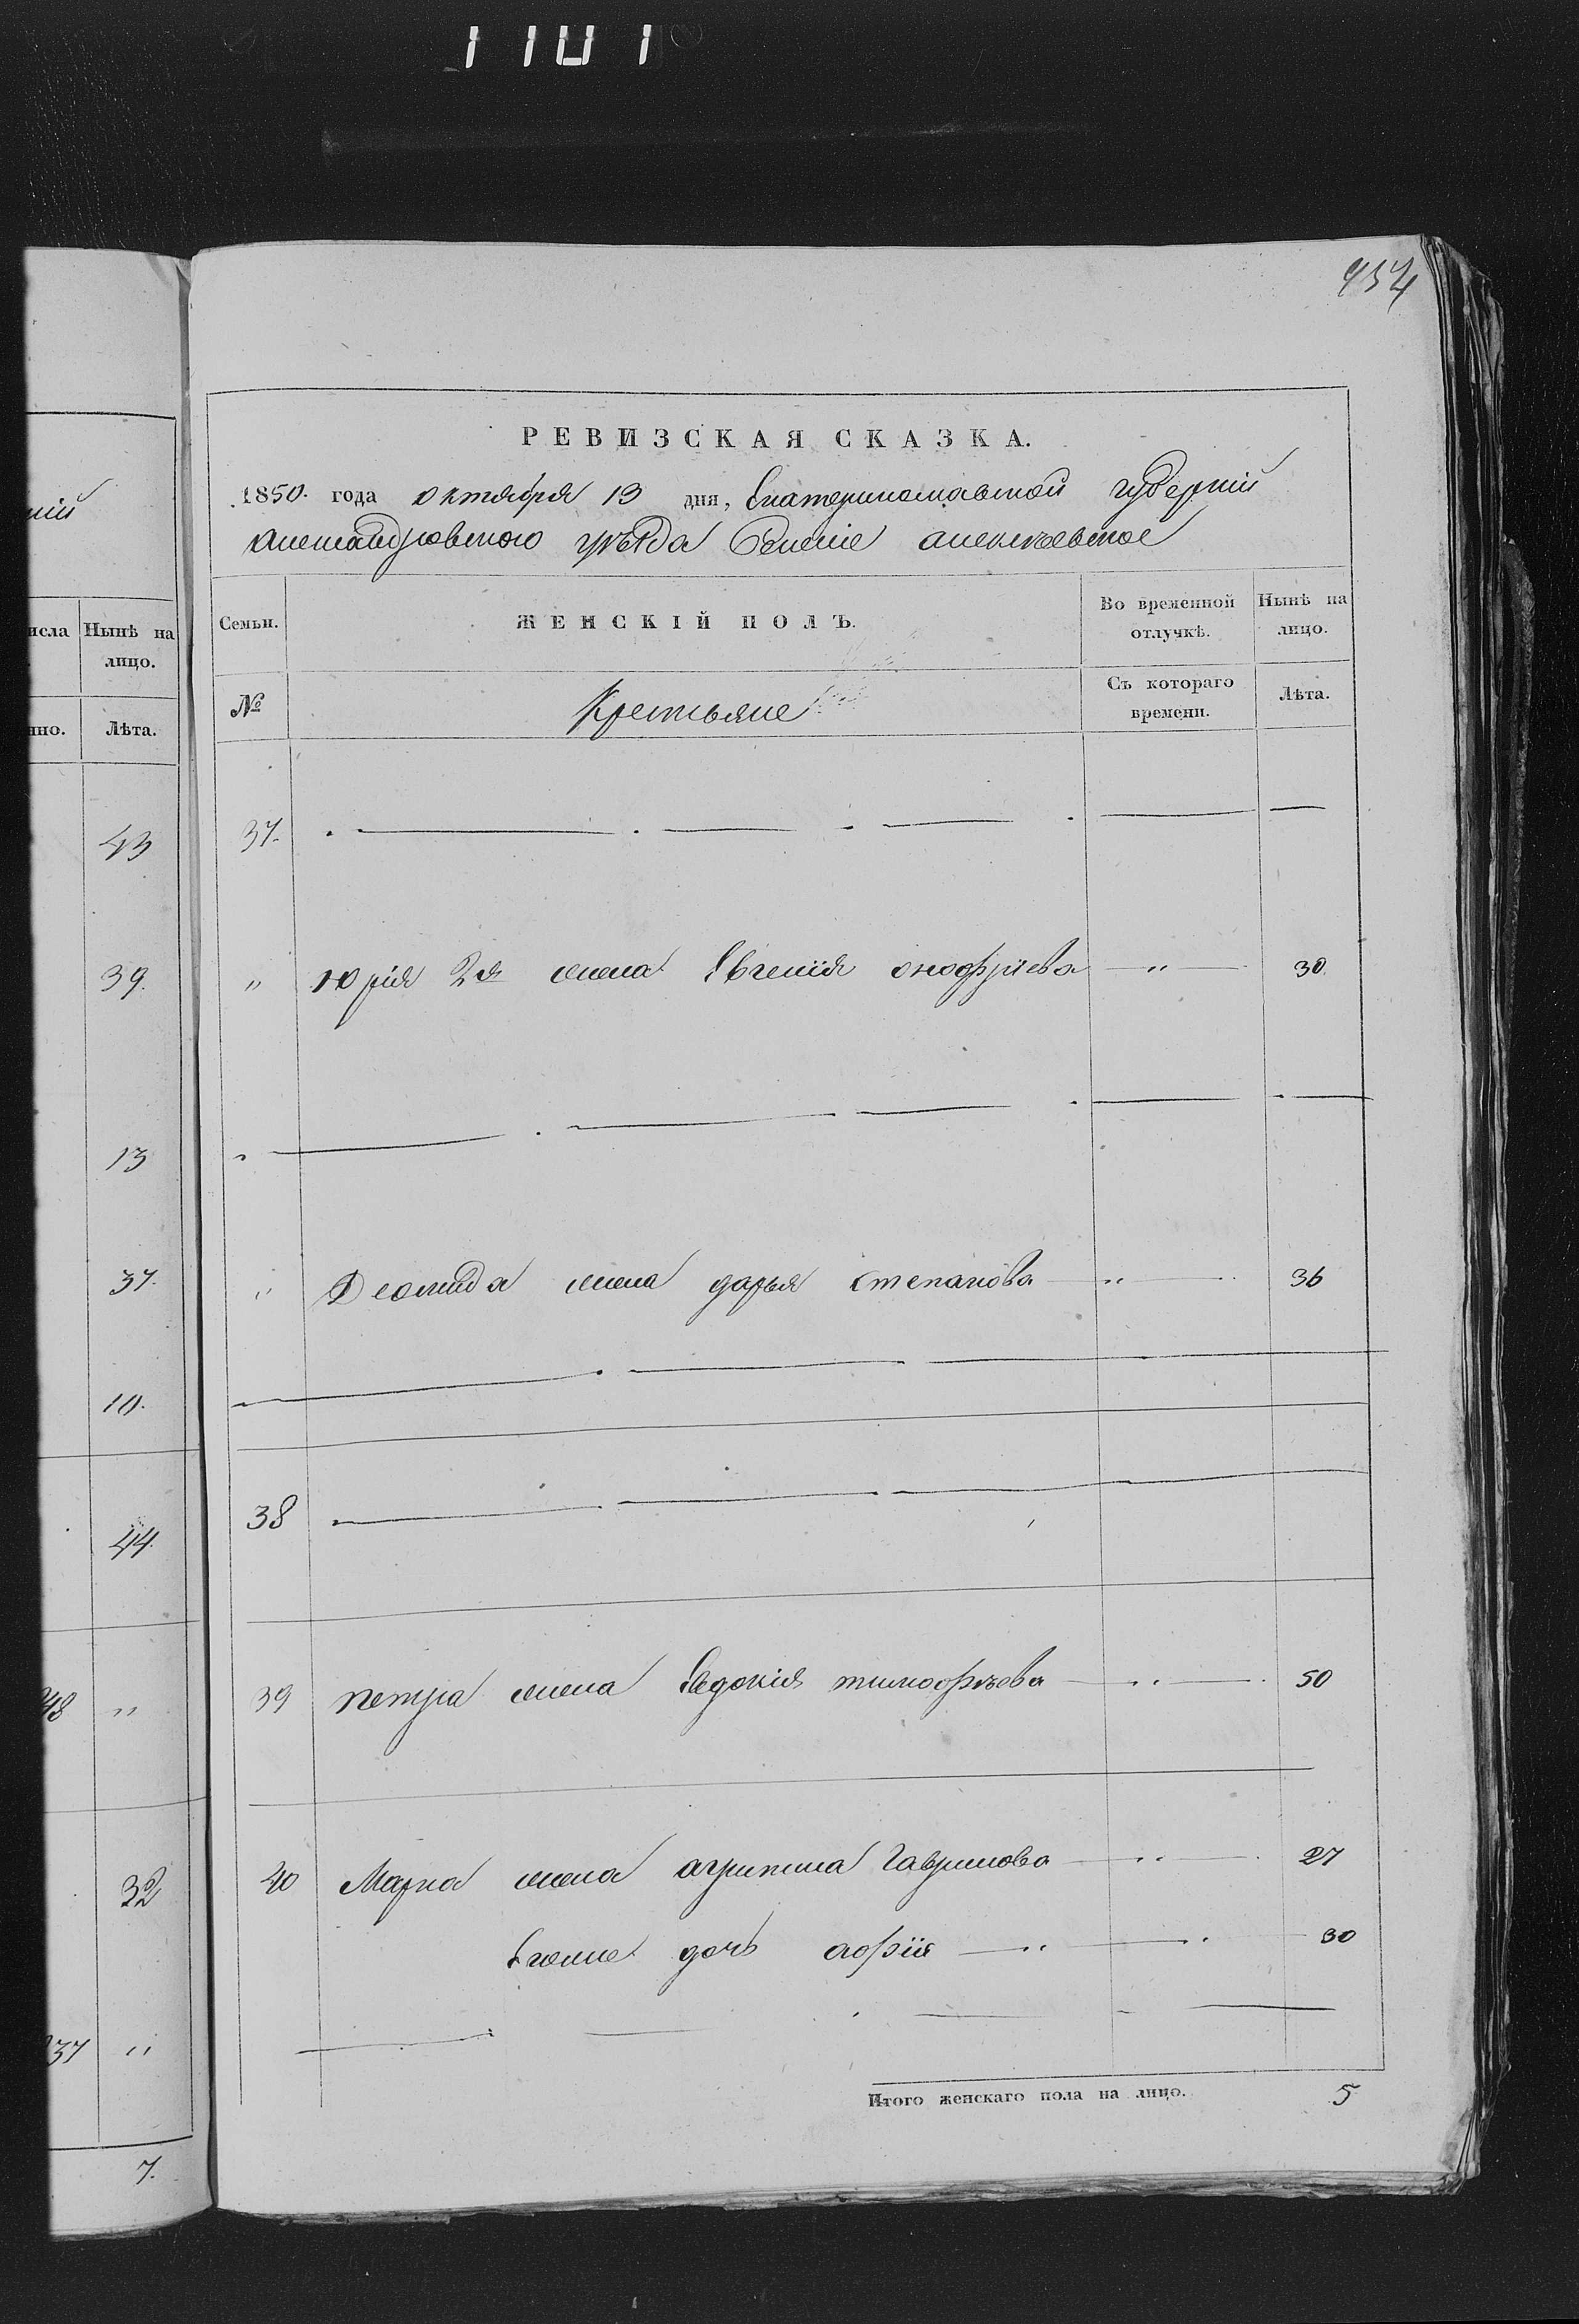 1101
454
РЕВИЗСКАЯ СКАЗКА.
1850. года октября 13 дня, Екатеринославской губерній
александровского уѣзда Селеніе алексѣевское
Семьи. ЖЕНСКІЙ ПОЛЪ. Во временной отлучкѣ. Нынѣ на лицо.
№ Крестьяне Съ котораго времени. Лѣта.
37.
" Юрія 2я жена Евгенія онофріева " 30.
" Деомида жена дарья степанова " 36
38
39 петра жена Евдокія тимофѣева " 50
40 Марка жена агрипина Гаврилова " 27
Егоже дочь " " 30
Итого женскаго пола на лицо. 5
ній
исла Нынѣ на лицо.
нно. Лѣта.
43
39.
13
37.
10.
44.
48 "
32
37 "
7.